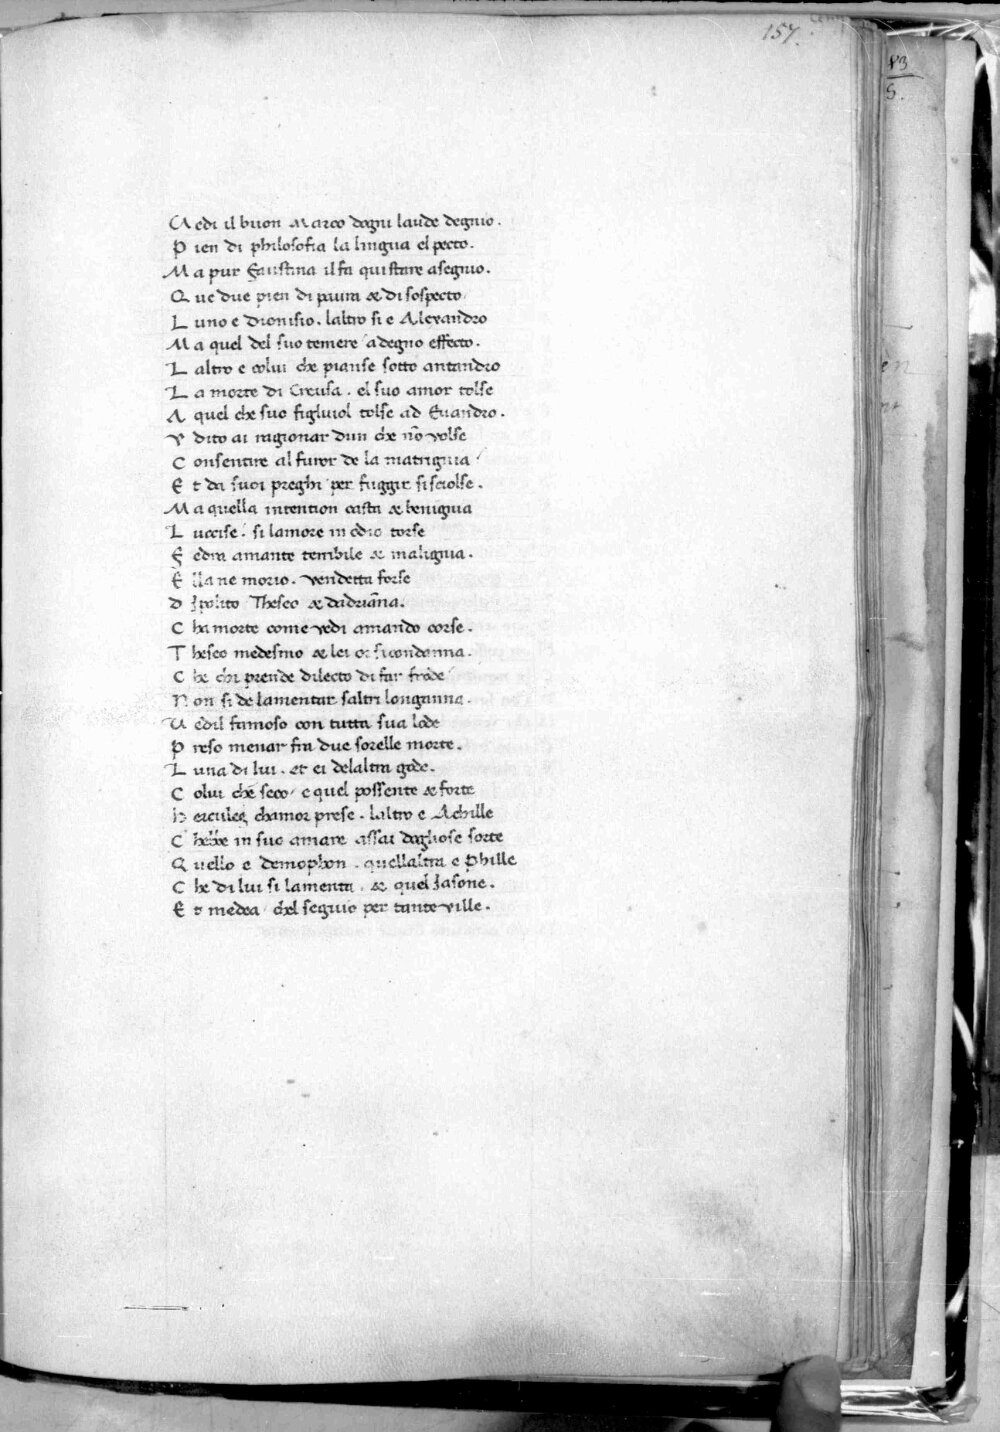 157.
83
S.
Vedi il buon Marco dogni laude degnio.
Pien di philosofia la lingua el pecto.
Ma pur Faustina il fa quistare a segnio.
Que due pien di paura & di sospecto
Luno e Dionisio. laltro si e Alexandro
Ma quel del suo temere a degno effecto.
Laltro e colui che pianse sotto antandro
La morte di Creusa. el suo amor tolse
A quel che suo figluiol tolse ad Evandro.
Vdito ai ragionar dun che nõ volse
Consentire al furor de la matrignia
Et da suoi preghi per fuggir si sciolse.
Ma quella intention casta & benignia
Luccise. si lamore in odio torse
Fedra amante terribile & malignia.
Ella ne morio. vendetta forse
D Ipolito Theseo & dadriãna.
Cha morte come vedi amando corse.
Theseo medesmo & lei or si condanna.
Che chi prende dilecto di far frode
Non si de lamentar saltri longanna.
Vedil famoso con tutta sua lode
Preso menar fra due sorelle morte.
Luna di lui. et ei delaltra gode.
Colui che seco e quel possente & forte
Hercules chamor prese. laltro e Achille
Chebbe in suo amare assai dogliose sorte
Quello e demophon. quellaltra e Phille
Che di lui si lamenta. & quel Jasone.
Et medea chel seguio per tante ville.